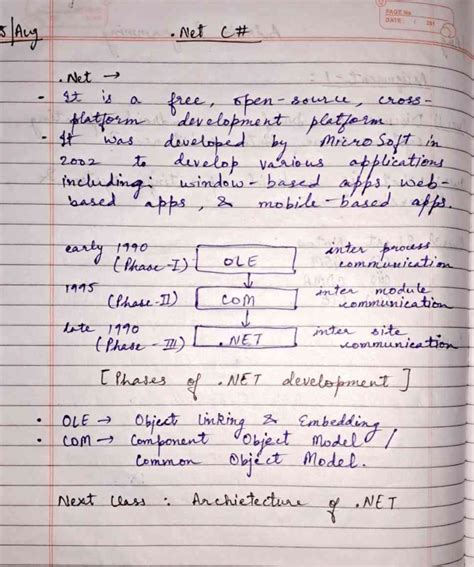 5/Aug
.Net C#
PAGE No
DATE
.Net →
- It is a free, open-source, cross-
platform development platform
- It was developed by MicroSoft in
2002 to develop various applications
including: window-based apps, web-
based apps, & mobile-based apps.
early 1990
(Phase-I) OLE inter process
communication
1995
(Phase-II) COM inter module
communication
late 1990
(Phase-III) .NET inter site
communication
[Phases of .NET development]
• OLE → Object linking & Embedding
• COM → Component Object Model /
Common Object Model.
Next Class : Archietecture of .NET